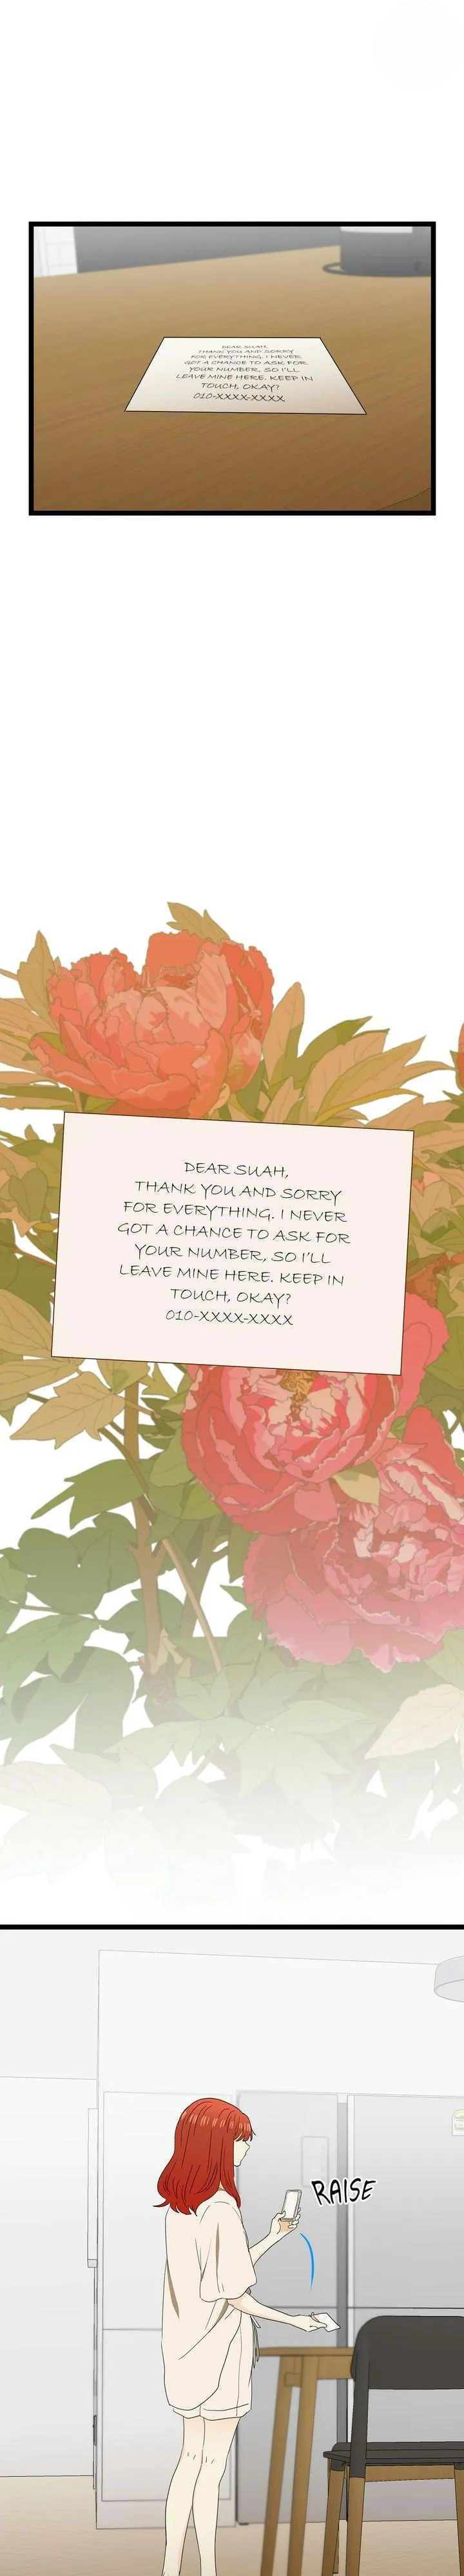 DEAR SUAH,
THANK YOU AND SORRY
FOR EVERYTHING. I NEVER
GOT A CHANCE TO ASK FOR
YOUR NUMBER, SO I'LL
LEAVE MINE HERE. KEEP IN
TOUCH, OKAY?
010-XXXX-XXXX
DEAR SUAH,
THANK YOU AND SORRY
FOR EVERYTHING. I NEVER
GOT A CHANCE TO ASK FOR
YOUR NUMBER, SO I'LL
LEAVE MINE HERE. KEEP IN
TOUCH, OKAY?
010-XXXX-XXXX
RAISE